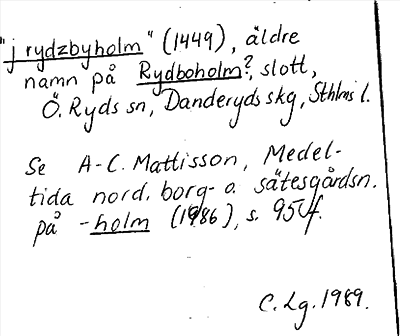 "j rydzbyholm" (1449), äldre
namn på Rydboholm?, slott,
Ö. Ryds sn, Danderyds skg, Sthlms l.
Se A-C. Mattisson, Medel-
tida nord. borg- o. sätesgårdsn.
på -holm (1986), s. 95 f.
C. Lg. 1989.